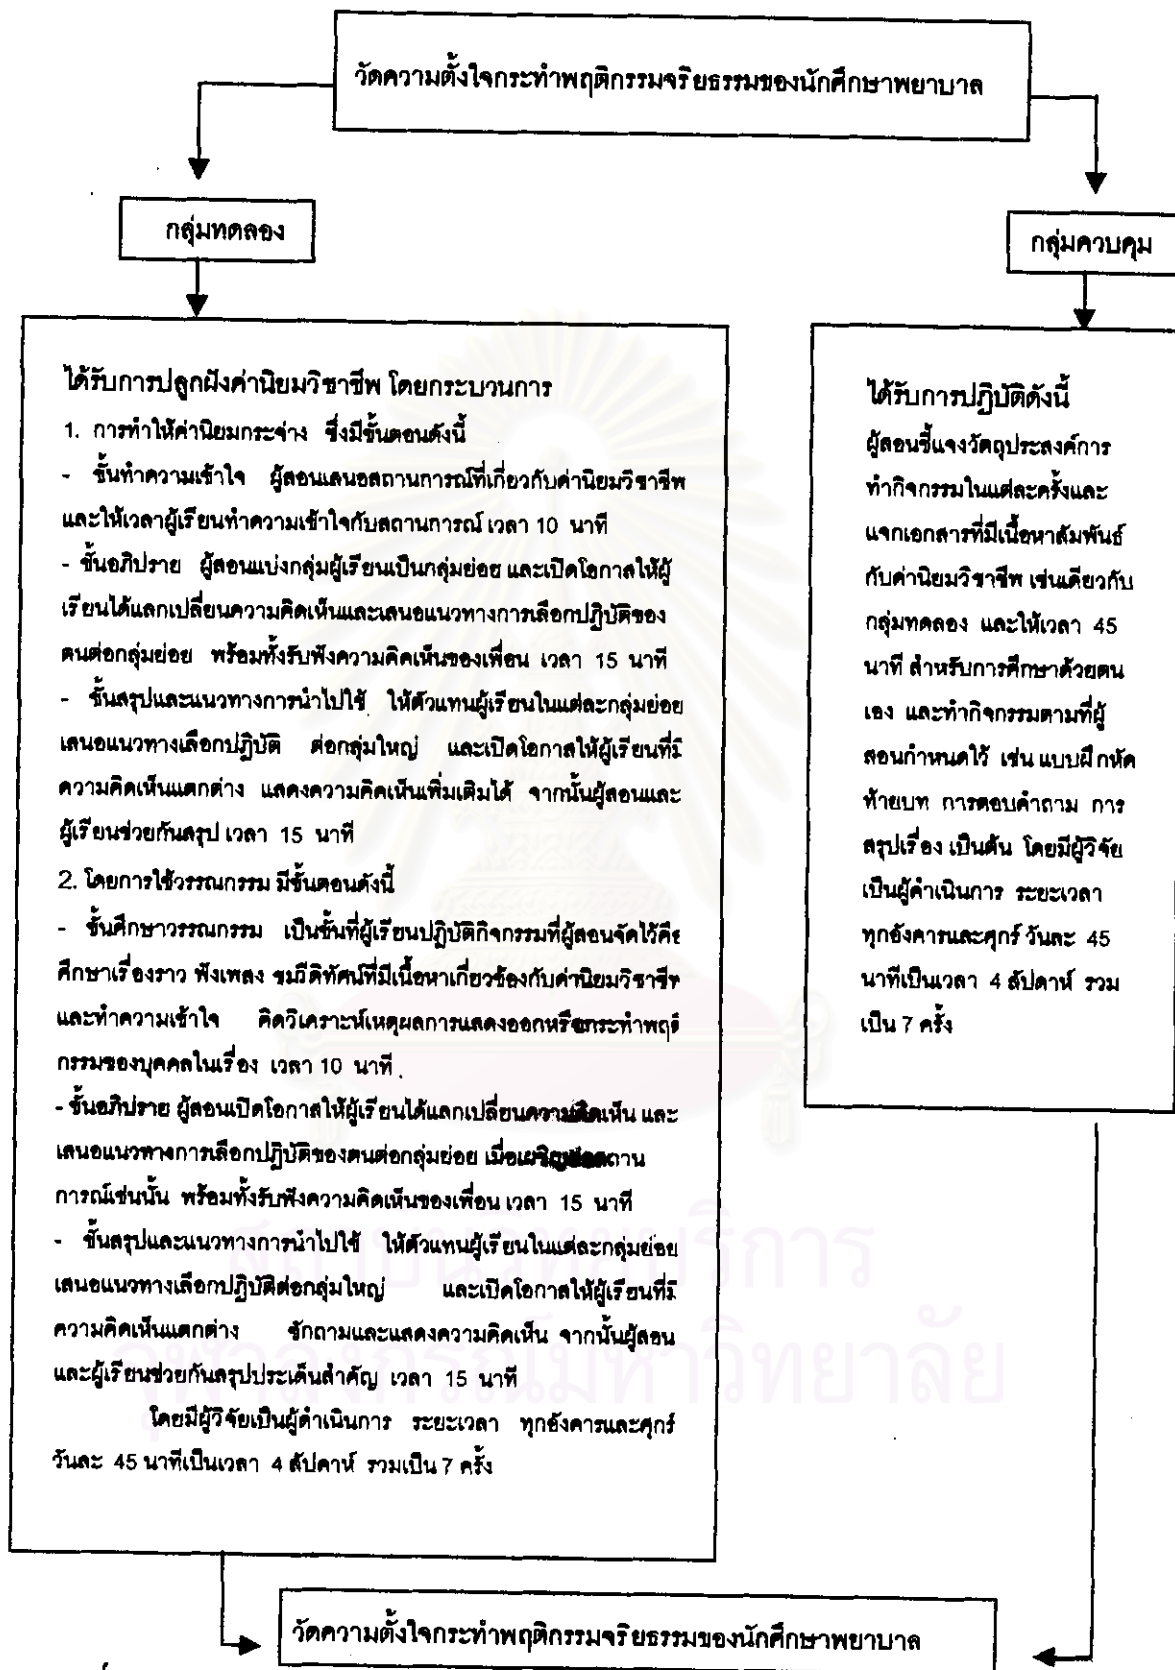 วัดความตั้งใจกระทำพฤติกรรมจริยธรรมของนักศึกษาพยาบาล
กลุ่มทดลอง
กลุ่มควบคุม
ได้รับการปลูกฝังค่านิยมวิชาชีพ โดยกระบวนการ
1. การทำให้ค่านิยมกระจ่าง ซึ่งมีขั้นตอนดังนี้
- ขั้นทำความเข้าใจ ผู้สอนเสนอสถานการณ์ที่เกี่ยวกับค่านิยมวิชาชีพ
และให้เวลาผู้เรียนทำความเข้าใจกับสถานการณ์ เวลา 10 นาที
- ขั้นอภิปราย ผู้สอนแบ่งกลุ่มผู้เรียนเป็นกลุ่มย่อย และเปิดโอกาสให้ผู้
เรียนได้แลกเปลี่ยนความคิดเห็นและเสนอแนวทางการเลือกปฏิบัติของ
ตนต่อกลุ่มย่อย พร้อมทั้งรับฟังความคิดเห็นของเพื่อน เวลา 15 นาที
- ขั้นสรุปและแนวทางการนำไปใช้ ให้ตัวแทนผู้เรียนในแต่ละกลุ่มย่อย
เสนอแนวทางเลือกปฏิบัติ ต่อกลุ่มใหญ่ และเปิดโอกาสให้ผู้เรียนที่มี
ความคิดเห็นแตกต่าง แสดงความคิดเห็นเพิ่มเติมได้ จากนั้นผู้สอนและ
ผู้เรียนช่วยกันสรุป เวลา 15 นาที
2. โดยการใช้วรรณกรรม มีขั้นตอนดังนี้
- ขั้นศึกษาวรรณกรรม เป็นขั้นที่ผู้เรียนปฏิบัติกิจกรรมที่ผู้สอนจัดไว้คือ
ศึกษาเรื่องราว ฟังเพลง ชมวีดิทัศน์ที่มีเนื้อหาเกี่ยวข้องกับค่านิยมวิชาชีพ
และทำความเข้าใจ คิดวิเคราะห์เหตุผลการแสดงออกหรือกระทำพฤติ
กรรมของบุคคลในเรื่อง เวลา 10 นาที
- ขั้นอภิปราย ผู้สอนเปิดโอกาสให้ผู้เรียนได้แลกเปลี่ยนความคิดเห็น และ
เสนอแนวทางการเลือกปฏิบัติของตนต่อกลุ่มย่อย เมื่อเผชิญ
การณ์เช่นนั้น พร้อมทั้งรับฟังความคิดเห็นของเพื่อน เวลา 15 นาที
- ขั้นสรุปและแนวทางการนำไปใช้ ให้ตัวแทนผู้เรียนในแต่ละกลุ่มย่อย
เสนอแนวทางเลือกปฏิบัติต่อกลุ่มใหญ่ และเปิดโอกาสให้ผู้เรียนที่มี
ความคิดเห็นแตกต่าง ซักถามและแสดงความคิดเห็น จากนั้นผู้สอน
และผู้เรียนช่วยกันสรุปประเด็นสำคัญ เวลา 15 นาที
โดยมีผู้วิจัยเป็นผู้ดำเนินการ ระยะเวลา ทุกอังคารและศุกร์
วันละ 45 นาทีเป็นเวลา 4 สัปดาห์ รวมเป็น 7 ครั้ง
ได้รับการปฏิบัติดังนี้
ผู้สอนชี้แจงวัตถุประสงค์การ
ทำกิจกรรมในแต่ละครั้งและ
แจกเอกสารที่มีเนื้อหาสัมพันธ์
กับค่านิยมวิชาชีพ เช่นเดียวกับ
กลุ่มทดลอง และให้เวลา 45
นาที สำหรับการศึกษาด้วยตน
เอง และทำกิจกรรมตามที่ผู้
สอนกำหนดไว้ เช่น แบบฝึกหัด
ท้ายบท การตอบคำถาม การ
สรุปเรื่อง เป็นต้น โดยมีผู้วิจัย
เป็นผู้ดำเนินการ ระยะเวลา
ทุกอังคารและศุกร์ วันละ 45
นาทีเป็นเวลา 4 สัปดาห์ รวม
เป็น 7 ครั้ง
สถาบันวิทยบริการ
จุฬาลงกรณ์มหาวิทยาลัย
วัดความตั้งใจกระทำพฤติกรรมจริยธรรมของนักศึกษาพยาบาล